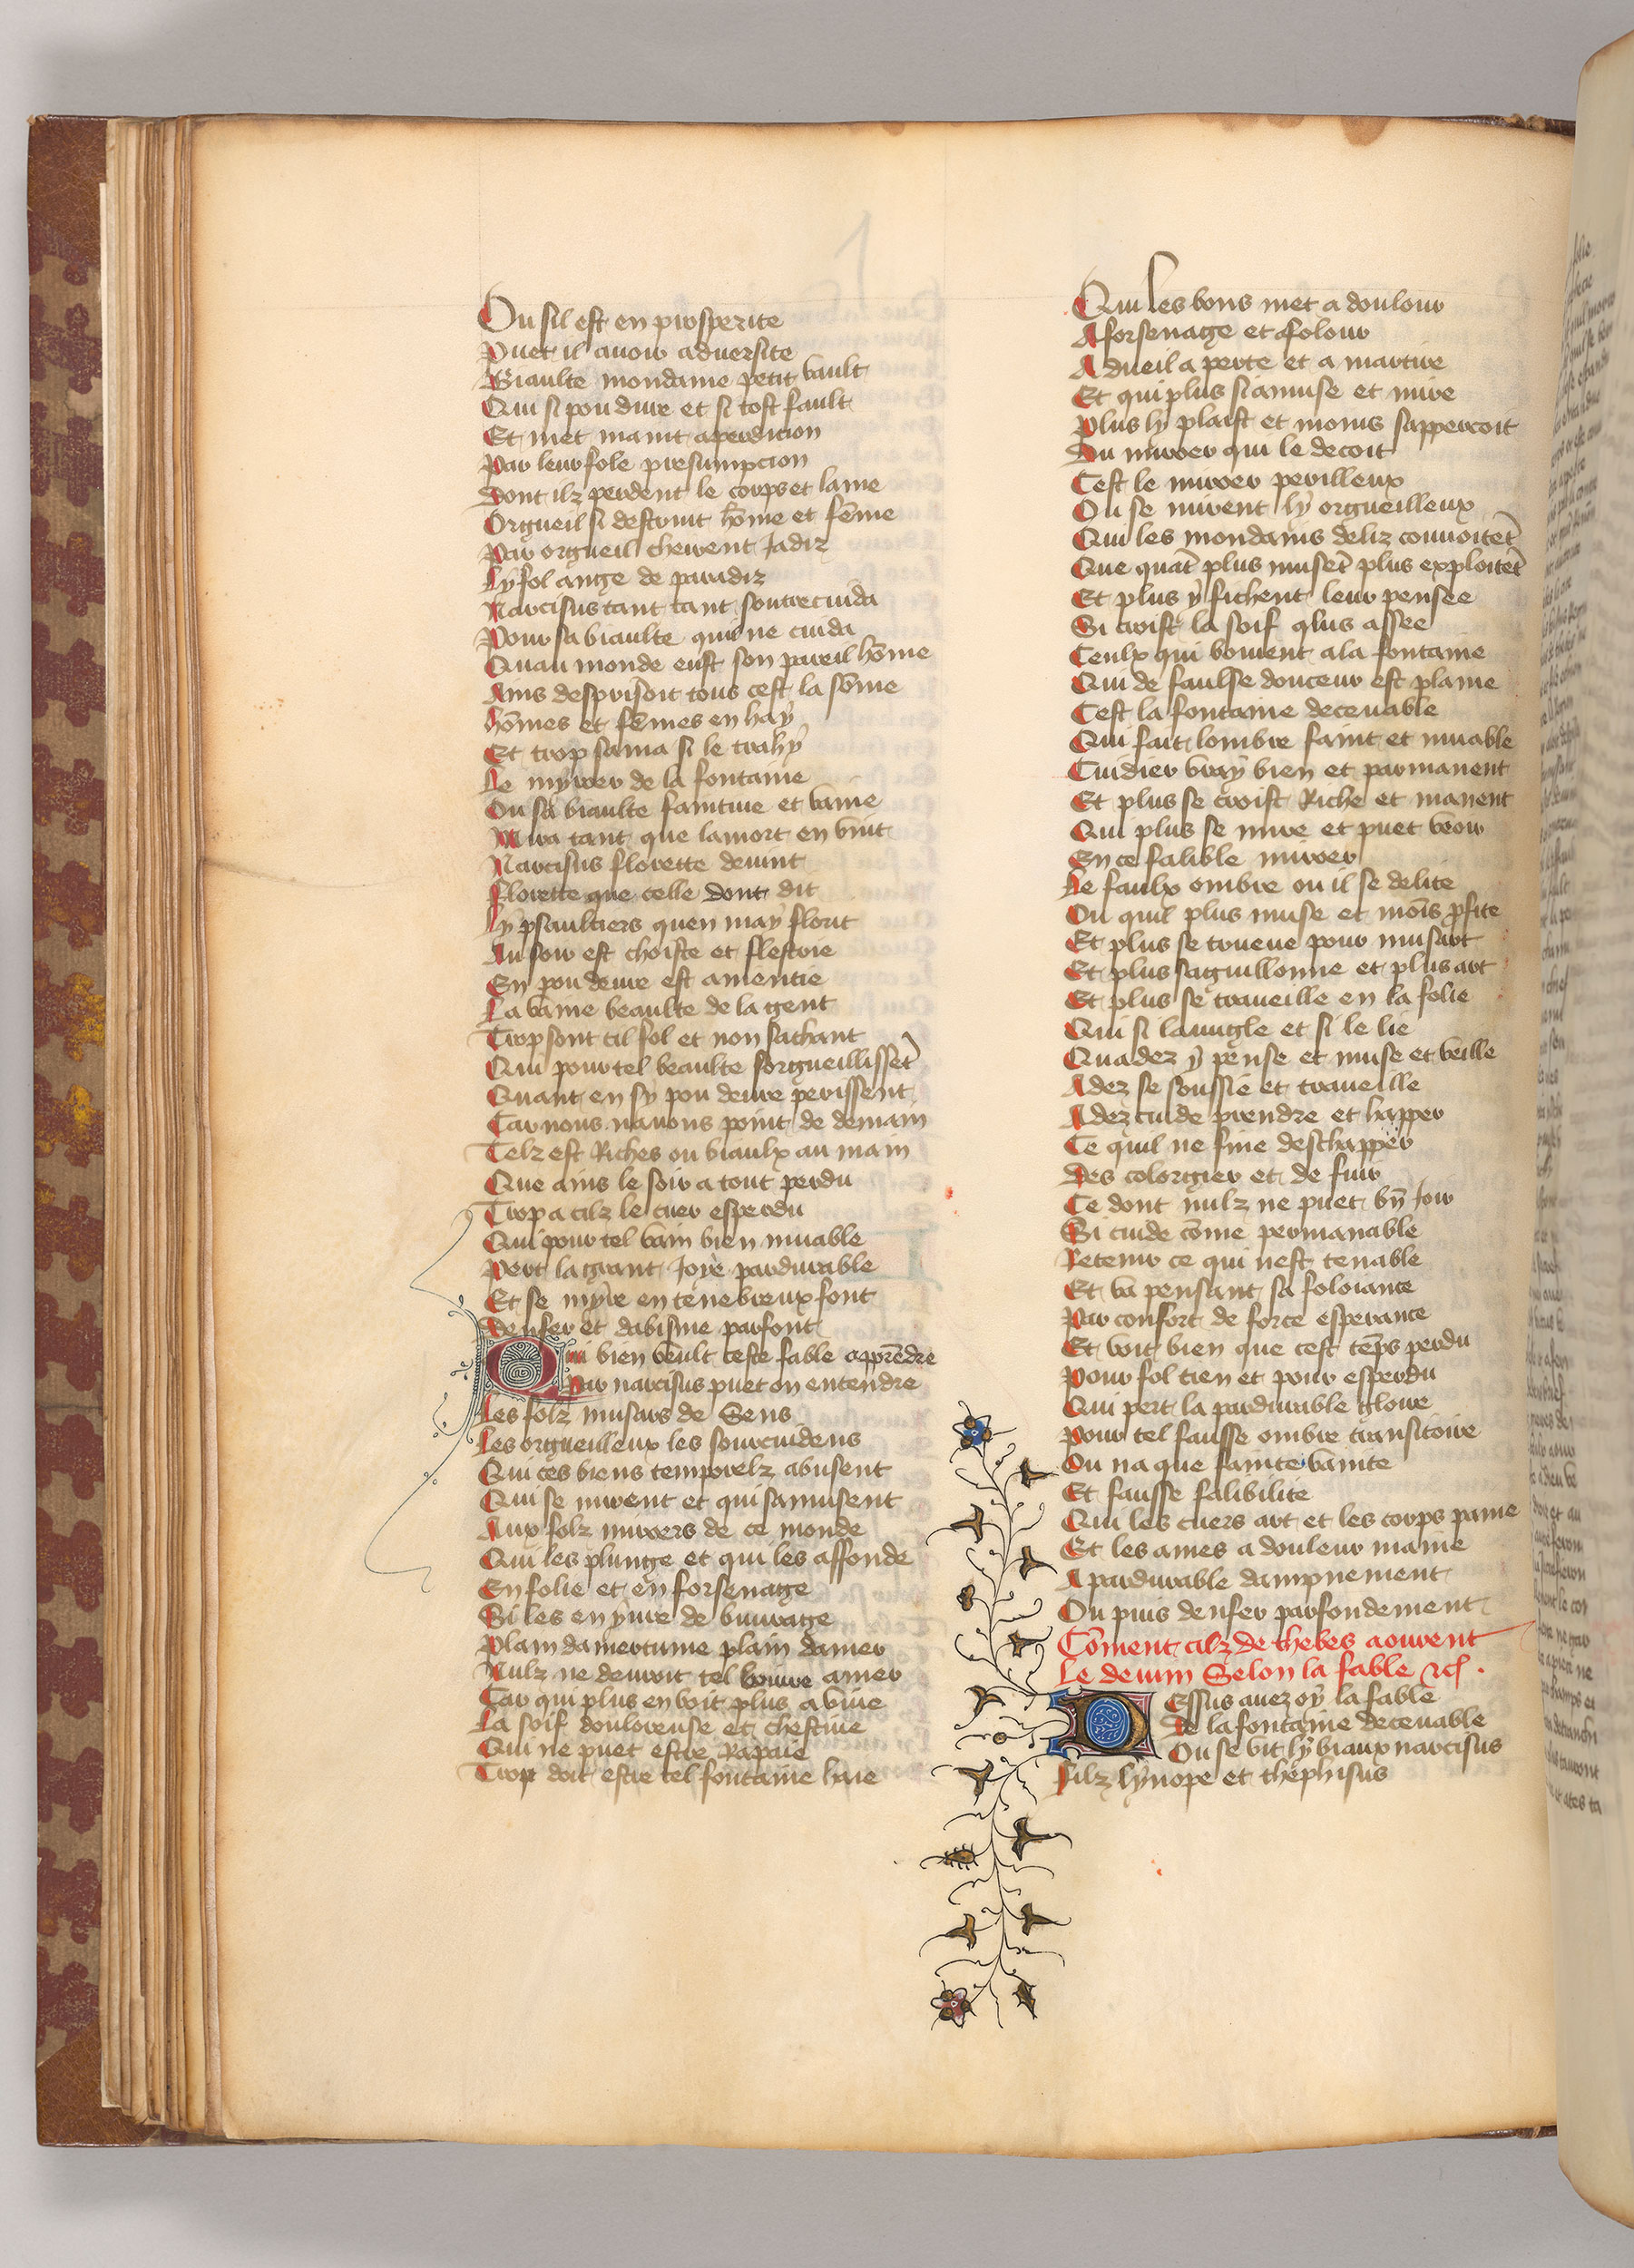 Ou sil est en prosperite
Puet il avoir adversite
Biaulte mondaine petit vault
Qui si pou dure et si tost fault
Et met maint a perdicion
Par leur fole presumpcion
Dont ilz perdent le corps et lame
Orgueil si destruit hõme et fẽme
Par orgueil cheirent Jadiz
Ly fol ange de paradiz
Narcisus tant tant soutrecuida
Pour sa biaulte quil ne cuida
Quau monde eust son pareil hõme
Ains desprisoit tous cest la sõme
Hõmes et fẽmes en hay
Et trop sama si le trahy
Le myroer de la fontaine
Ou sa biaulte faintiue et vaine
Mira tant que la mort en vint
Narcisus florette devint
Florette que celle dont dit
Ly psaultiers quen may florit
Au soir est choiste et flestrie
En pou deure est amentie
La vaine beaulte de la gent
Trop sont cil fol et non sachant
Qui pour tel beaulte sorgueillissẽt
Quant en sy pou deure perissent
Car nous navons point de demain
Telz est Riches ou biaulx au main
Que ains le soir a tout perdu
Trop a cilz le cuer esperdu
Qui pour tel vain bien muable
Pert la grant Joye pardurable
Et se myre en tenebreux font
Denfer et dabisme parfont
Qui bien veult ceste fable apprẽdre
Par narcisus puet on entendre
Les folz musars de Sens
Les orgueilleux les sourcuidens
Qui ces biens temporelz abusent
Qui se mirent et qui samusent
Aux folz miroers de ce monde
Qui les plunge et qui les affonde
En folie et en forsenage
Si les enyvre de buvrage
Plain damertume plain damer
Nulz ne devroit tel boivre amer
Car qui plus en boit plus a vive
La soif doulereuse et chestive
Qui ne puet estre Rapaie
Trop doit estre tel fontaine haie
Qui les bons met a doulour
A forsenage et a folour
A dueil a perte et a martire
Et qui plus si amuse et mire
Plus ly plaist et moins sappercoit
Du miroer qui le decoit
Cest le miroer perilleux
Ou se mirent ly orgueilleux
Qui les mondains deliz convoitẽt
Que quãt plus musẽt plus exploitẽt
Et plus y fichent leur pensee
Si croist la soif plus assee
Ceulx qui boivent a la fontaine
Qui de faulse douceur est plaine
Cest la fontaine decevable
Qui fait lombre faint et muable
Cuidier vray bien et parmanent
Et plus se croist Riche et manent
Qui plus se mire et puet veoir
En ce falible miroer
Le faulx ombre ou il se delite
Ou quil plus muse et moĩs profite
Et plus se treuve pour musart
Et plus saguillonne et plus art
Et plus se traveille en la folie
Qui si lavugle et si le lie
Quadez y pense et muse et veille
Adez se soussie et traveille
Adez cuide prendre et happer
Ce quil ne fine deschapper
Des colorgier et de fuir
Ce dont nulz ne puet bñ Joir
Si cuide cõme permanable
Retenir ce qui nest tenable
Et va pensant sa foloiance
Par confort de force esperance
Et voit bien que cest tẽps perdu
Pour fol tien et pour esperdu
Qui pert la pardurable gloire
Pour tel fausse ombre transitoire
Ou na que fainte vanite
Et fausse falibilite
Qui les cuers art et les corps paine
Et les ames a douleur maine
A pardurable dampnement
Ou puis denfer parfondement
Cõment cilz de thebes aourent
Le devin Selon la fable &c.
Dessus avez oy la fable
De la fontaine decevable
Ou se vit ly biaux narcisus
Filz lynope et thephisus